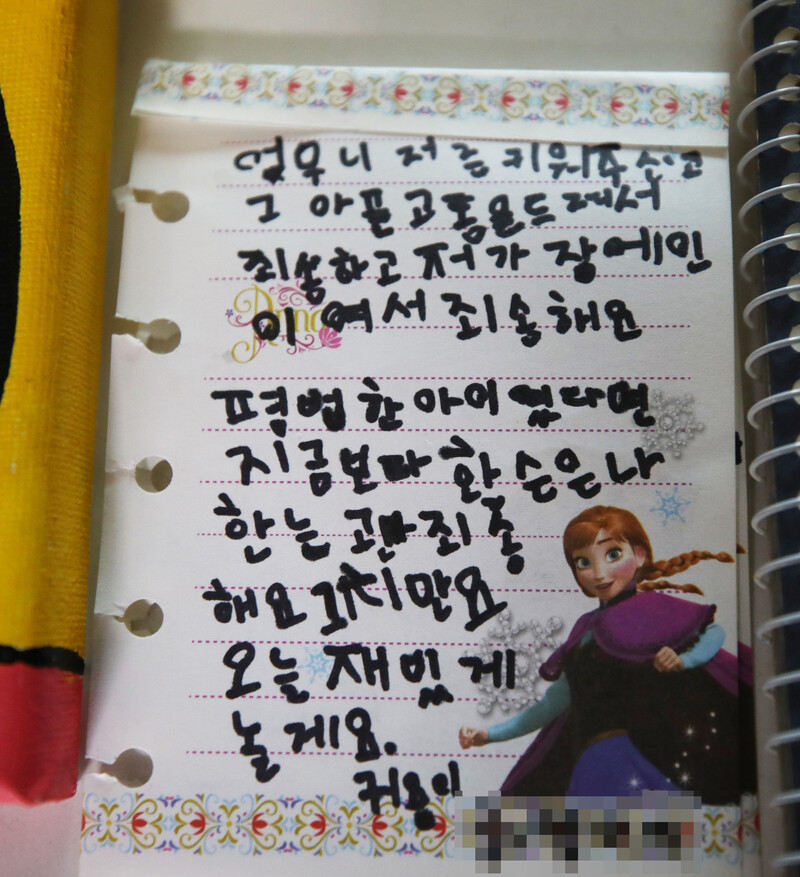 엄무니 저를 키워주시고
그 아픈고통을드려서
죄송하고 저가 장에인
이여서 죄송해요
평범한아이 었다면
지금보다
한는 죄종
해요 그치만요
오늘 재밌게
놀게요.
귀욤이